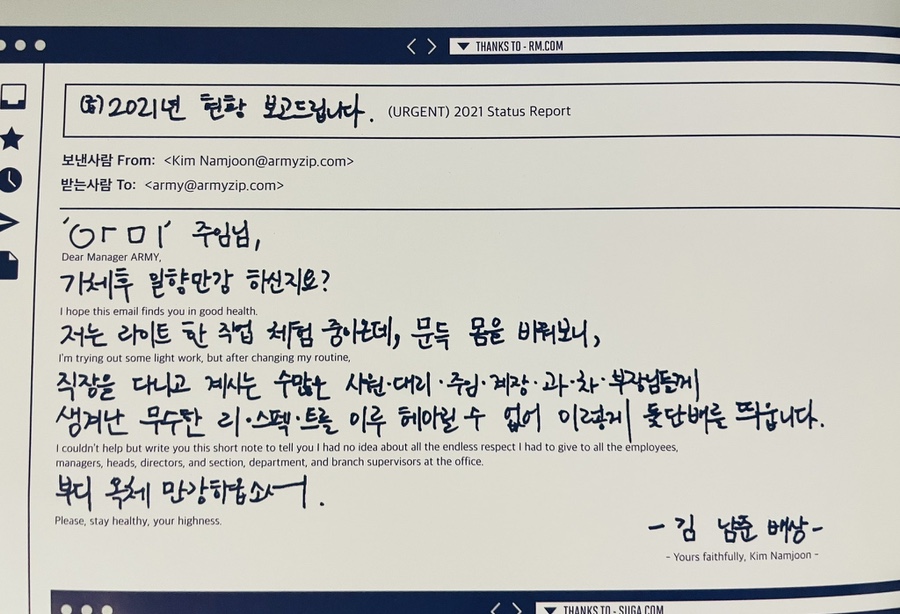 THANKS TO - RM.COM
(급) 2021년 현황 보고드립니다. (URGENT) 2021 Status Report
보낸사람 From: <Kim Namjoon@armyzip.com>
받는사람 To: <army@armyzip.com>
'아미' 주임님,
Dear Manager ARMY,
기체후 일향만강 하신지요?
I hope this email finds you in good health.
저는 라이트 한 직업 체험 중이온데, 문득 몸을 바꿔보니,
I'm trying out some light work, but after changing my routine,
직장을 다니고 계시는 수많은 사원·대리·주임·계장·과·차·부장님들께
생겨난 무수한 리·스펙·트를 이루 헤아릴 수 없어 이렇게 돛단배를 띄웁니다.
I couldn't help but write you this short note to tell you I had no idea about all the endless respect I had to give to all the employees,
managers, heads, directors, and section, department, and branch supervisors at the office.
부디 옥체 만강하옵소서.
Please, stay healthy, your highness.
- 김 남준 배상 -
- Yours faithfully, Kim Namjoon -
THANKS TO - SUGA.COM